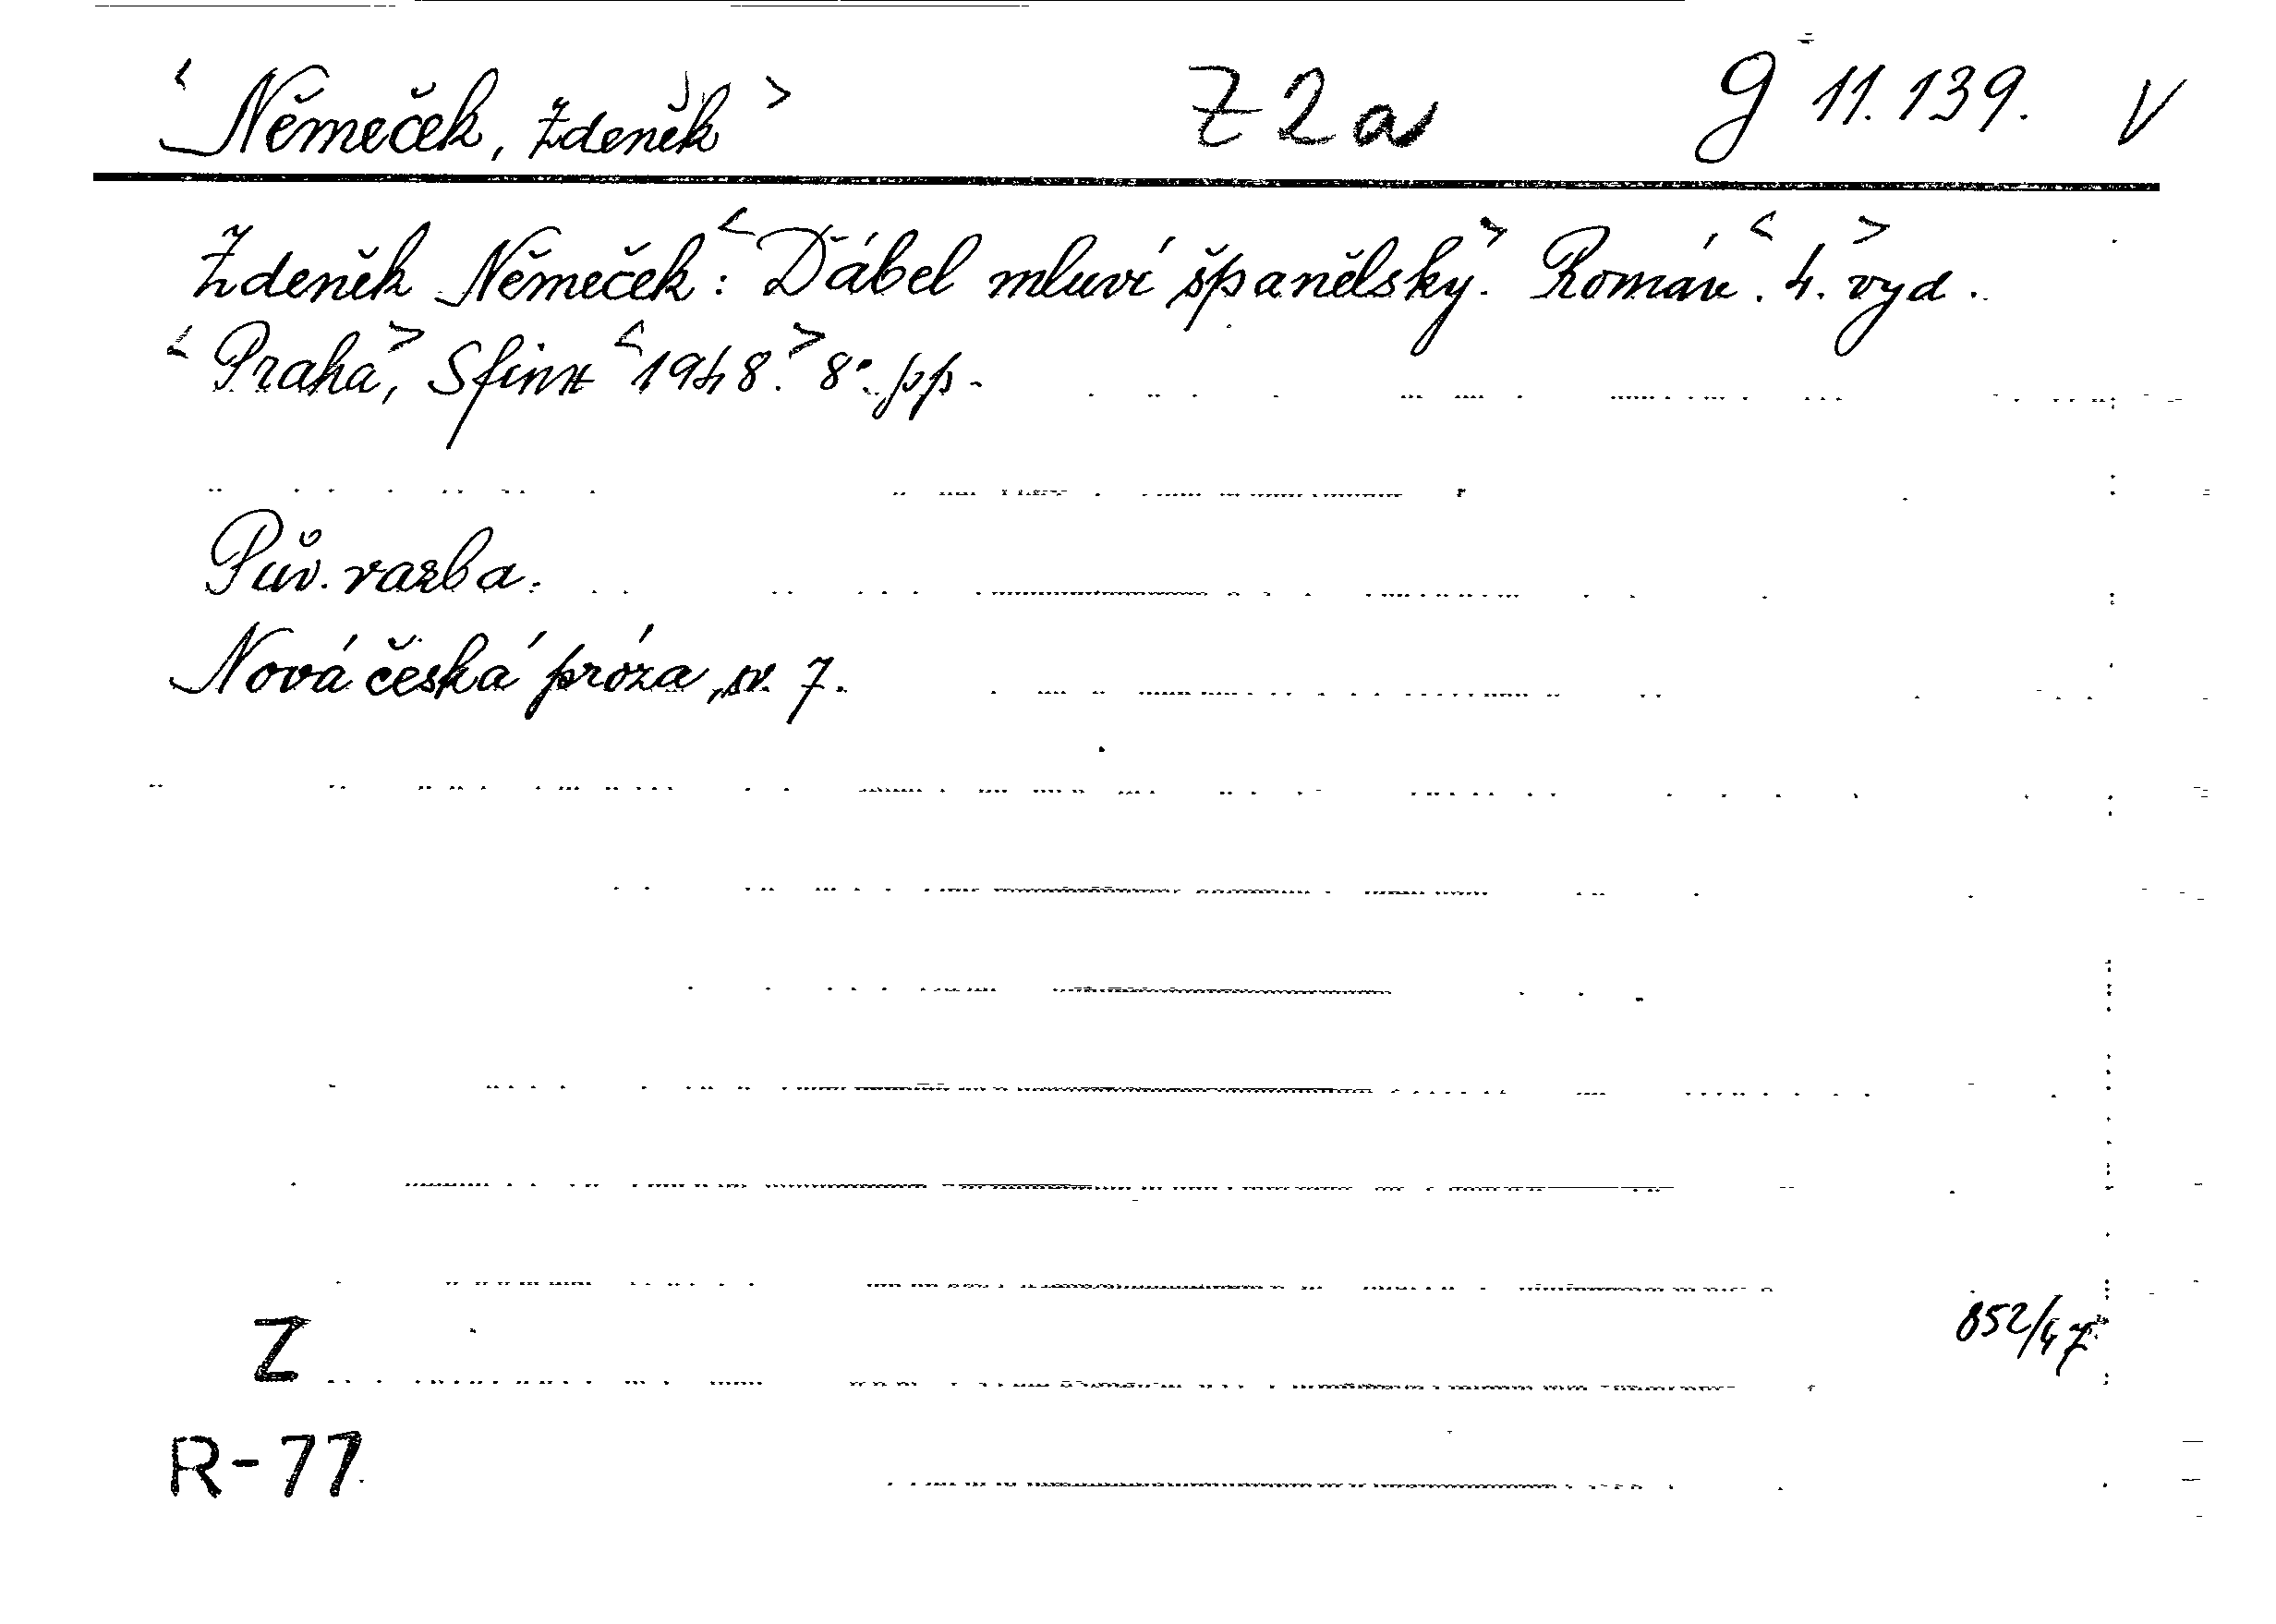 <Němeček, Zdeněk> Z 2a g 11.139. V
Zdeněk Němeček: <Ďábel mluví španělsky.> Román. <4.> vyd.
<Praha>, Sfinx <1948.> 8°. pp.
Pův. vazba.
Nová česká próza, sv. 7.
852/47
Z
R-77